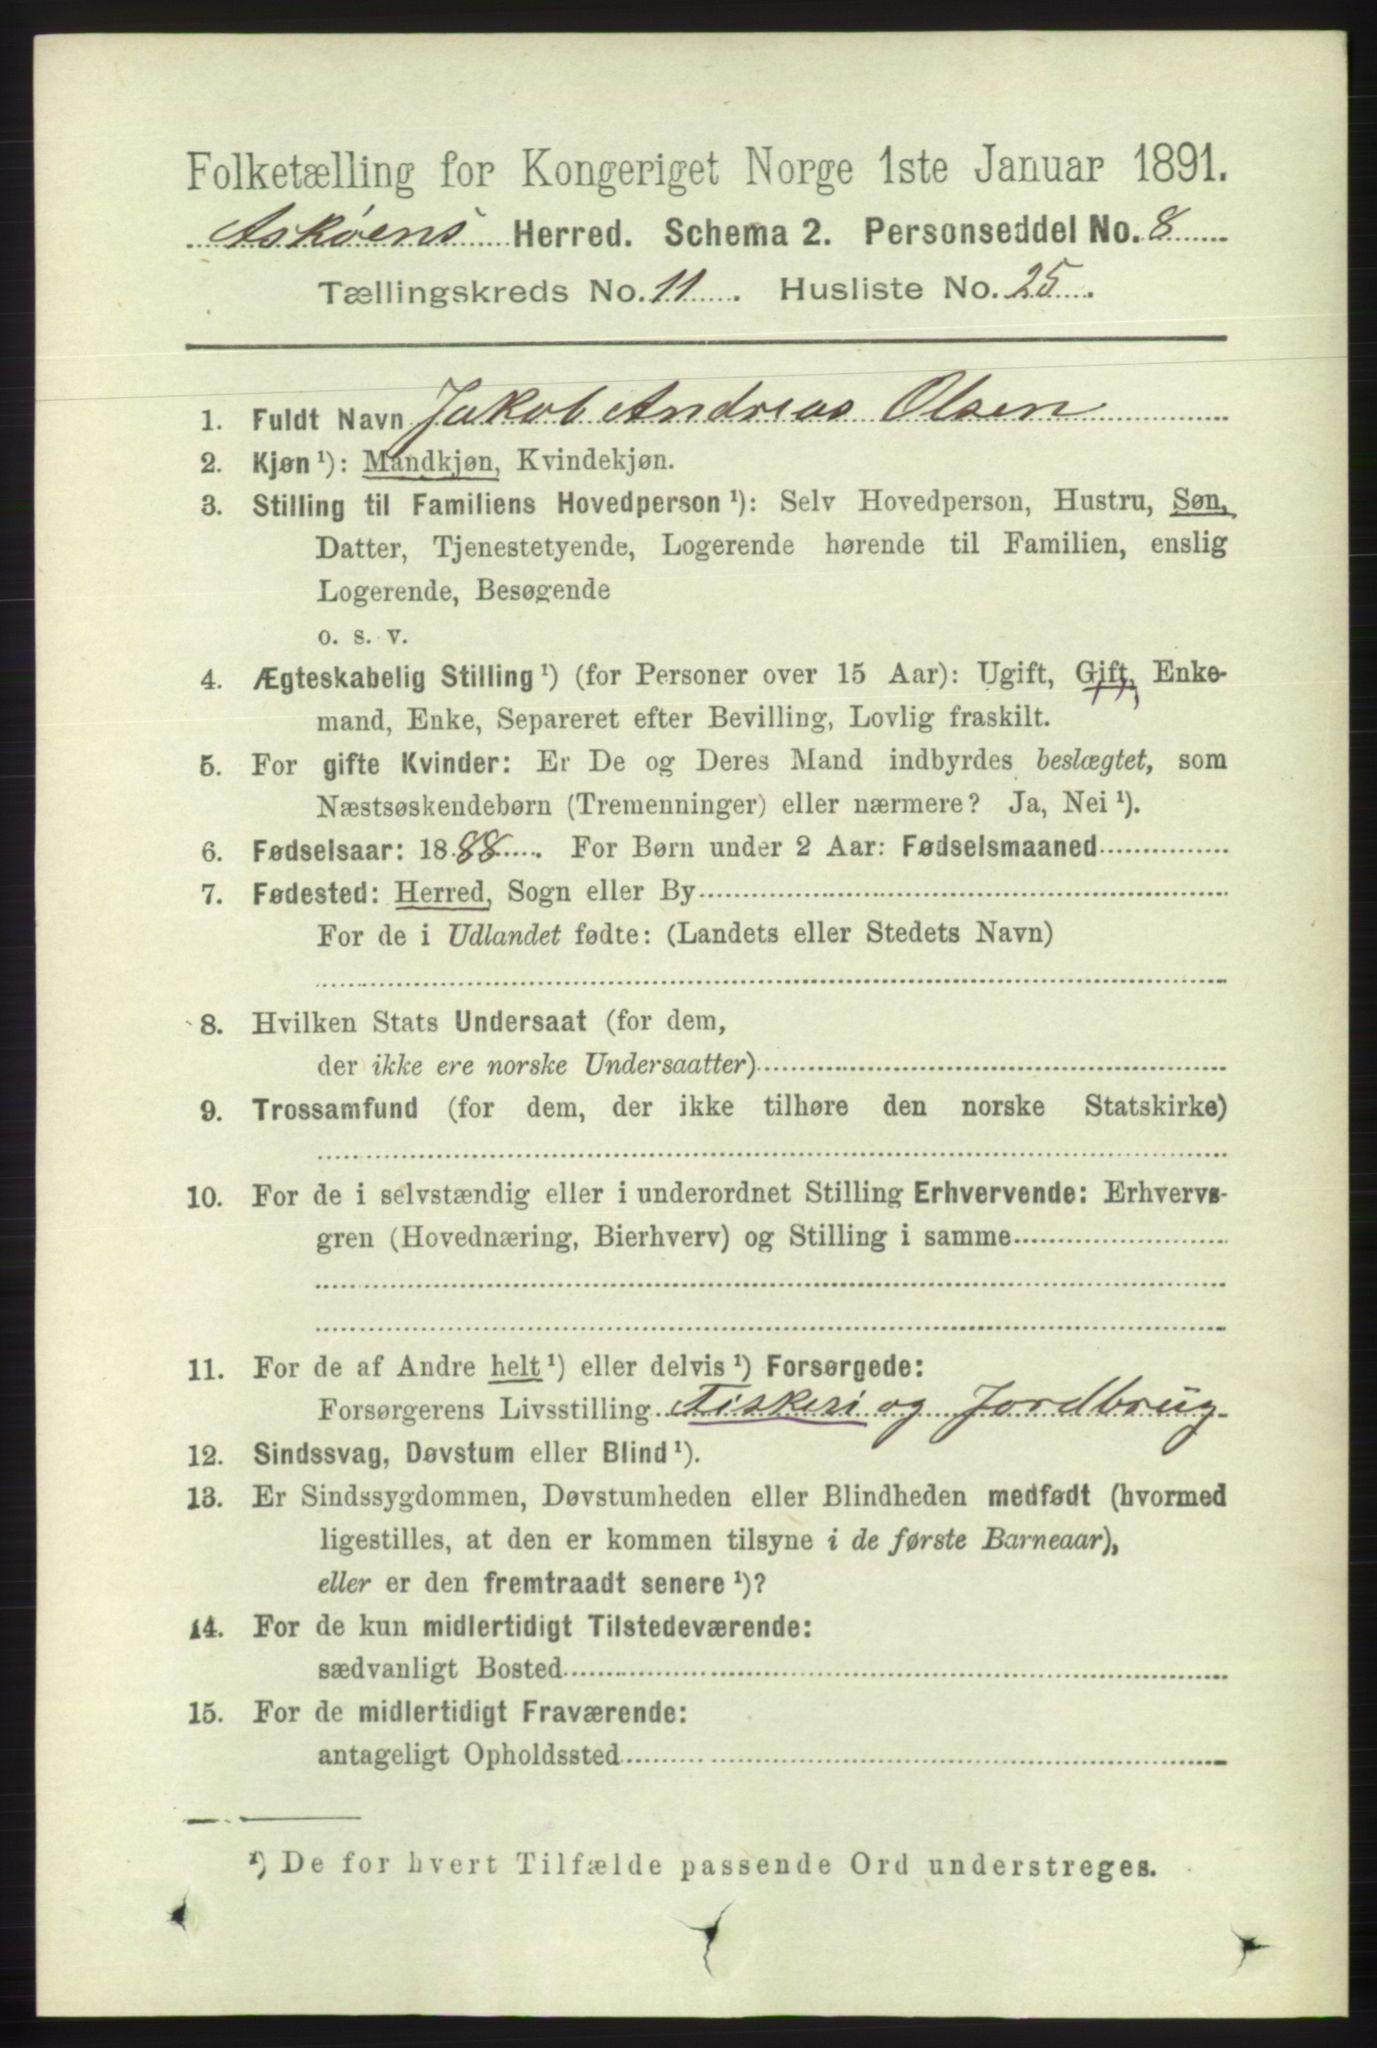 Folketælling for Kongeriget Norge 1ste Januar 1891.
Askøens Herred. Schema 2. Personseddel No. 8
Tællingskreds No. 11. Husliste No. 25.
1. Fuldt Navn Jakob Andreas Olsen
2. Kjøn ¹): Mandkjøn, Kvindekjøn.
3. Stilling til Familiens Hovedperson ¹): Selv Hovedperson, Hustru, Søn,
Datter, Tjenestetyende, Logerende hørende til Familien, enslig
Logerende, Besøgende
o. s. v.
4. Ægteskabelig Stilling ¹) (for Personer over 15 Aar): Ugift, Gift, Enke-
mand, Enke, Separeret efter Bevilling, Lovlig fraskilt.
5. For gifte Kvinder: Er De og Deres Mand indbyrdes beslægtet, som
Næstsøskendebørn (Tremenninger) eller nærmere? Ja, Nei ¹).
6. Fødselsaar: 1888. For Børn under 2 Aar: Fødselsmaaned
7. Fødested: Herred, Sogn eller By
For de i Udlandet fødte: (Landets eller Stedets Navn)
8. Hvilken Stats Undersaat (for dem,
der ikke ere norske Undersaatter)
9. Trossamfund (for dem, der ikke tilhøre den norske Statskirke)
10. For de i selvstændig eller i underordnet Stilling Erhvervende: Erhvervs-
gren (Hovednæring, Bierhverv) og Stilling i samme
11. For de af Andre helt ¹) eller delvis ¹) Forsørgede:
Forsørgerens Livsstilling Fiskeri og Jordbrug
12. Sindssvag, Døvstum eller Blind ¹).
13. Er Sindssygdommen, Døvstumheden eller Blindheden medfødt (hvormed
ligestilles, at den er kommen tilsyne i de første Barneaar),
eller er den fremtraadt senere ¹)?
14. For de kun midlertidigt Tilstedeværende:
sædvanligt Bosted
15. For de midlertidigt Fraværende:
antageligt Opholdssted
¹) De for hvert Tilfælde passende Ord understreges.